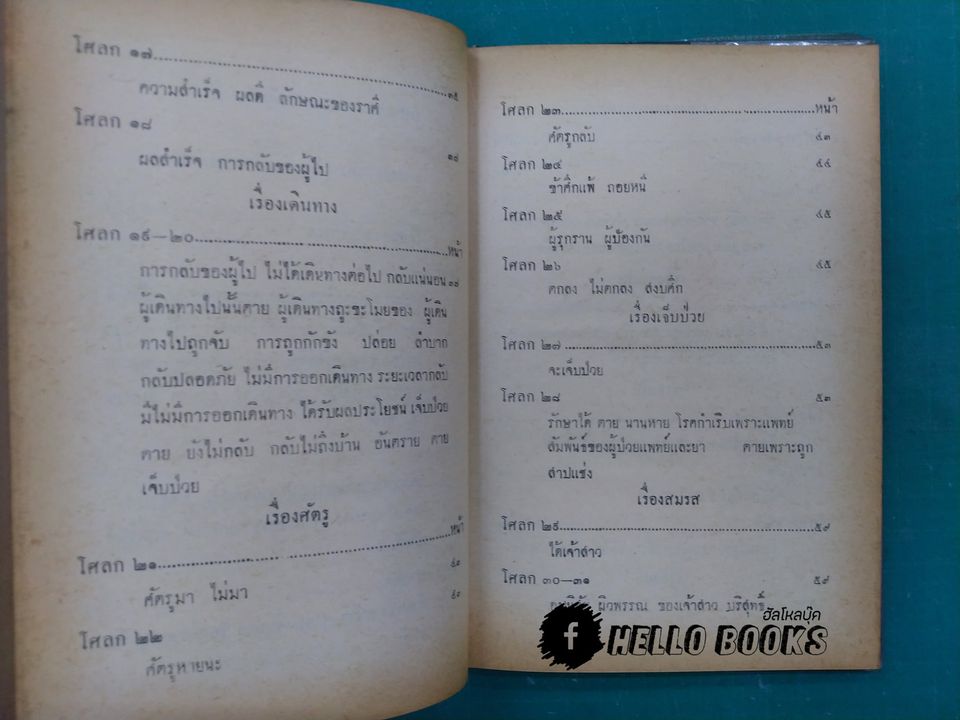 โศลก ๑๗........................................๓๕
ความสำเร็จ ผลดี ลักษณะของราศี
โศลก ๑๘
ผลสำเร็จ การกลับของผู้ไป
เรื่องเดินทาง
โศลก ๑๙—๒๐........................................หน้า
การกลับของผู้ไป ไม่ได้เดินทางต่อไป กลับแน่นอน ๓๘
ผู้เดินทางไปนั้นตาย ผู้เดินทางถูกขะโมยของ ผู้เดิน
ทางไปถูกจับ การถูกกักขัง ปล่อย ลำบาก
กลับปลอดภัย ไม่มีการออกเดินทาง ระยะเวลากลับ
มีไม่มีการออกเดินทาง ได้รับผลประโยชน์ เจ็บป่วย
ตาย ยังไม่กลับ กลับไม่ถึงบ้าน อันตราย ตาย
เจ็บป่วย
เรื่องศัตรู
โศลก ๒๑........................................หน้า
ศัตรูมา ไม่มา
โศลก ๒๒
ศัตรูหายนะ
โศลก ๒๓........................................หน้า
ศัตรูกลับ ๔๓
โศลก ๒๔
ข้าศึกแพ้ ถอยหนี
โศลก ๒๕ ๔๕
ผู้รุกราน ผู้ป้องกัน
โศลก ๒๖ ๔๕
ตกลง ไม่ตกลง สงบศึก
เรื่องเจ็บป่วย
โศลก ๒๗........................................๕๓
จะเจ็บป่วย
โศลก ๒๘ ๕๓
รักษาได้ ตาย นานหาย โรคกำเริบเพราะแพทย์
สัมพันธ์ของผู้ป่วยแพทย์และยา ตายเพราะถูก
สาปแช่ง
เรื่องสมรส
โศลก ๒๙........................................๕๗
ได้เจ้าสาว
โศลก ๓๐—๓๑ ๕๙
ผิวพรรณ ของเจ้าสาว บริสุทธิ์
ฮัลโหลบุ๊ค
f HELLO BOOKS